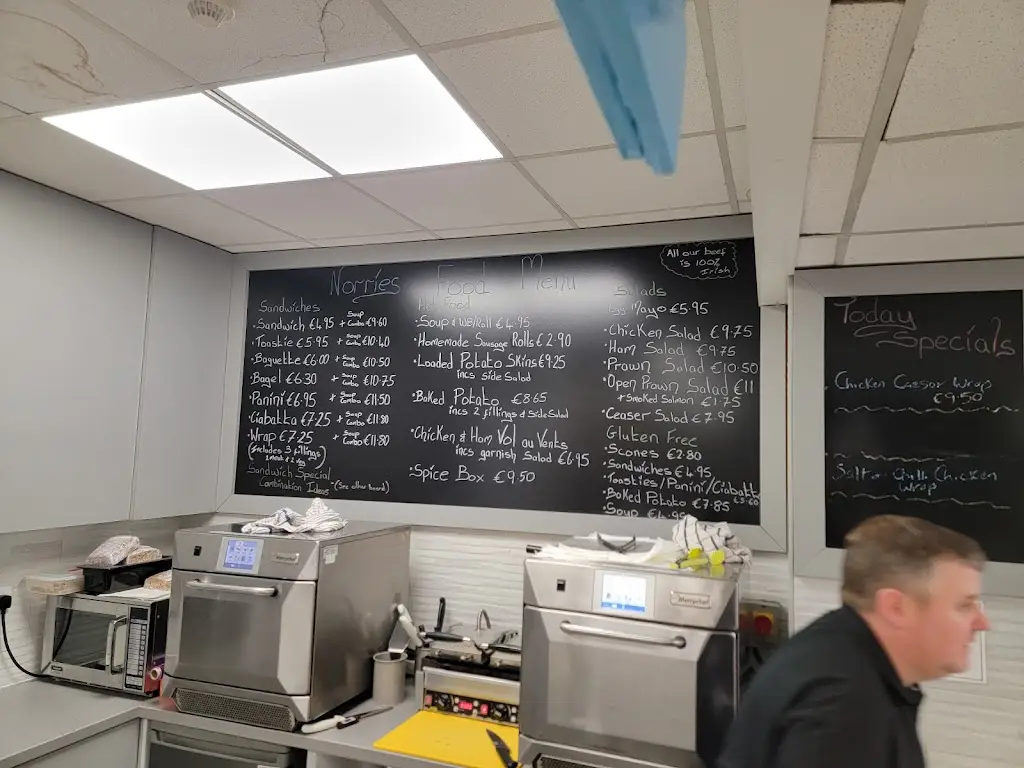 Norries Food Menu
All our beef
is 100%
Irish
Sandwiches
·Sandwich €4.95 + Soup Combo €9.60
·Toastie €5.95 + Soup Combo €10.40
·Baguette €6.00 + Soup Combo €10.50
·Bagel €6.30 + Soup Combo €10.75
·Panini €6.95 + Soup Combo €11.50
·Ciabatta €7.25 + Soup Combo €11.80
·Wrap €7.25 + Soup Combo €11.80
(includes 3 fillings
Sandwich Special
Combination Ideas (See other board)
Hot Food
·Soup & WB/Roll €4.95
·Homemade Sausage Rolls €2.90
·Loaded Potato Skins €9.25
incs side Salad
·Baked Potato €8.65
incs 2 fillings & Side Salad
·Chicken & Ham Vol au Vents
incs garnish Salad €6.95
·Spice Box €9.50
Salads
Egg Mayo €5.95
·Chicken Salad €9.75
·Ham Salad €9.75
·Prawn Salad €10.50
·Open Prawn Salad €11
+ Smoked Salmon €1.75
·Ceaser Salad €7.95
Gluten Free
·Scones €2.80
·Sandwiches €4.95
·Toasties/Panini/Ciabatta
·Baked Potato €7.85
·Soup
Today
Specials
Chicken Caesar Wrap
€9.50
Salt & Chilli Chicken
Wrap
Merrychef